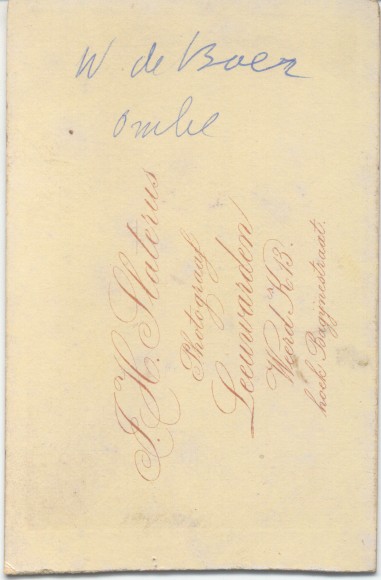 W. de Boer
Omke
J. H. Slaterus
Photograaf
Leeuwarden
Weerd K 13.
hoek Bagijnestraat.